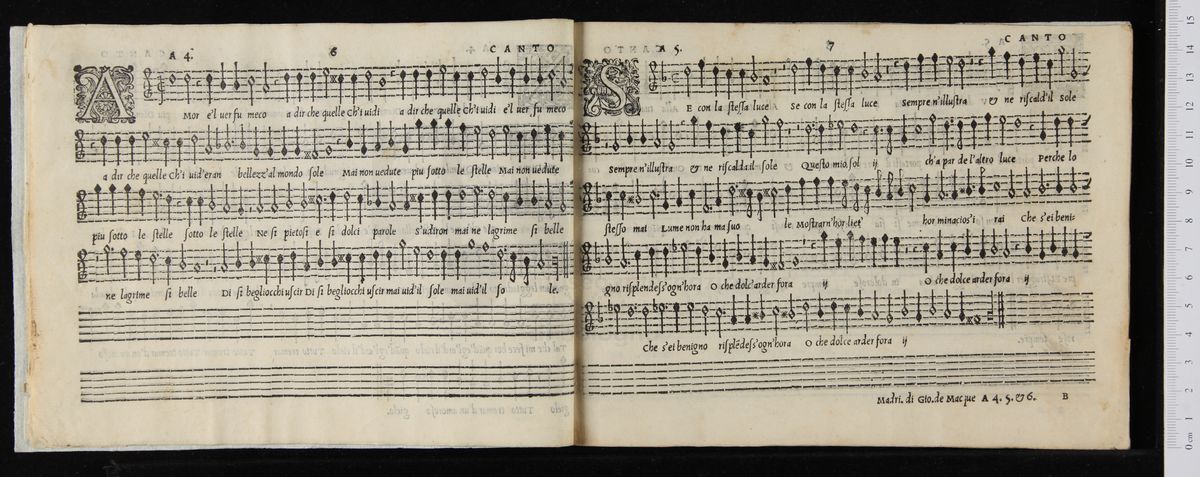 A 4. 6 CANTO
AMor e'l uer fu meco a dir che quelle Ch'i uidi a dir che quelle Ch'i uidi e'l uer fu meco
a dir che quelle Ch'i uid'eran bellezz'al mondo sole Mai non uedute piu sotto le stelle Mai non uedute
piu sotto le stelle sotto le stelle Ne si pietosi e si dolci parole S'udiron mai ne lagrime si belle
ne lagrime si belle Di si begliocchi uscir Di si begliocchi uscir mai uid'il sole mai uid'il so le.
A 5. 7 CANTO
SE con la stessa luce Se con la stessa luce sempre n'illustra & ne riscald'il sole
sempre n'illustra & ne riscalda il sole Questo mio sol ij ch'a par de l'altro luce Perche lo
stesso mai Lume non ha ma suo le Mostrarn'hor liet' hor minacios'i rai Che s'ei beni:
gno risplendess'ogn'hora O che dolc'arder fora ij O che dolce arder fora ij
Che s'ei benigno risplēdess'ogn'hora O che dolce arder fora ij
Madri. di Gio. de Macque A 4. 5. & 6. B
0 cm 1 2 3 4 5 6 7 8 9 10 11 12 13 14 15